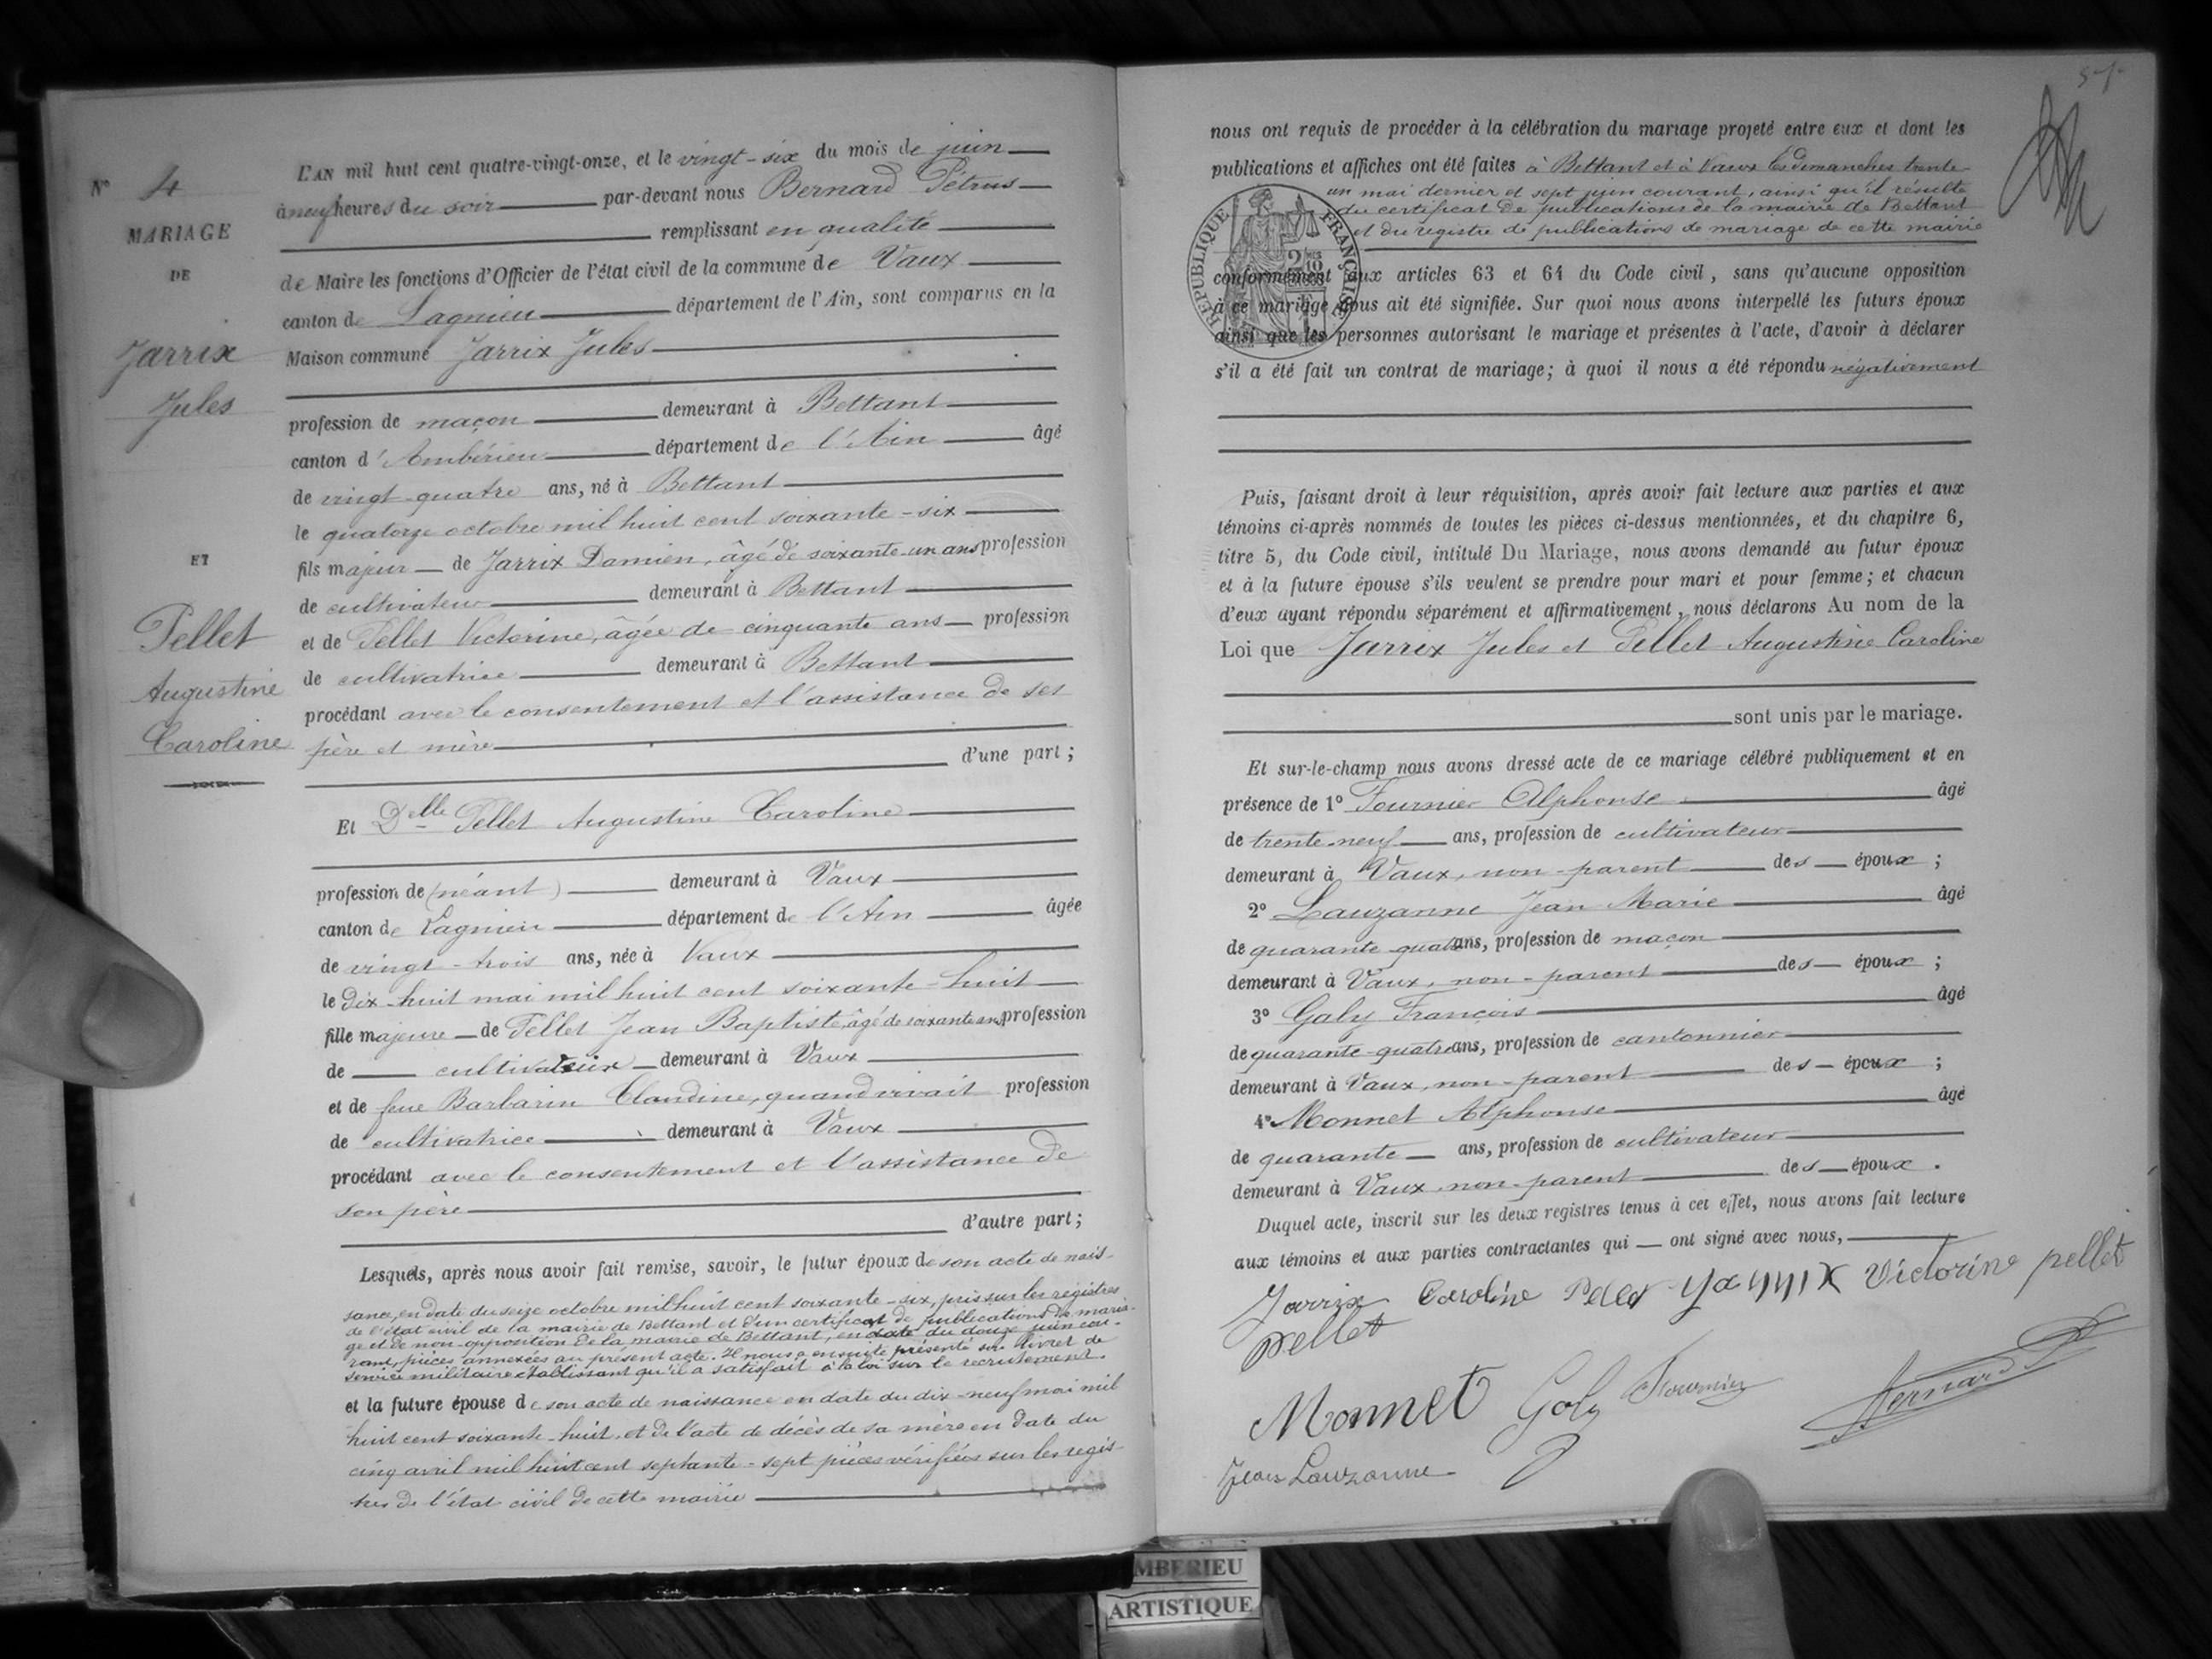 N° 4
MARIAGE
DE
Jarrix
Jules
ET
Pellet
Augustine
Caroline
L'AN mil huit cent quatre-vingt-onze, et le vingt-six du mois de juin
à neuf heures du soir par-devant nous Bernard Pétrus
remplissant en qualité
de Maire les fonctions d'Officier de l'état civil de la commune de Vaux
canton de Lagnieu département de l'Ain, sont comparus en la
Maison commune Jarrix Jules
profession de maçon demeurant à Bettant
canton d'Ambérieu département de l'Ain âgé
de vingt-quatre ans, né à Bettant
le quatorze octobre mil huit cent soixante-six
fils majeur de Jarrix Damien, âgé de soixante-un ans profession
de cultivateur demeurant à Bettant
et de Pellet Victorine, âgée de cinquante ans profession
de cultivatrice demeurant à Bettant
procédant avec le consentement et l'assistance de ses
père et mère
d'une part;
Et Delle Pellet Augustine Caroline
profession de (néant) demeurant à Vaux
canton de Lagnieu département de l'Ain âgée
de vingt-trois ans, née à Vaux
le dix-huit mai mil huit cent soixante-huit
fille majeure de Pellet Jean Baptiste, âgé de soixante ans profession
de cultivateur demeurant à Vaux
et de feue Barbarin Claudine, quand vivait profession
de cultivatrice demeurant à Vaux
procédant avec le consentement et l'assistance de
son père
d'autre part;
Lesquels, après nous avoir fait remise, savoir, le futur époux de son acte de nais-
sance, en date du seize octobre mil huit cent soixante-six, pris sur les registres
de l'état civil de la mairie de Bettant et d'un certificat de publications de maria-
ge et de non-opposition de la mairie de Bettant, en date du douze juin cou-
rant, pièces annexées au présent acte. Il nous a ensuite présenté son livret de
service militaire établissant qu'il a satisfait à la loi sur le recrutement.
et la future épouse de son acte de naissance en date du dix-neuf mai mil
huit cent soixante-huit, et de l'acte de décès de sa mère en date du
cinq avril mil huit cent septante-sept pièces vérifiées sur les regis-
tres de l'état civil de cette mairie
nous ont requis de procéder à la célébration du mariage projeté entre eux et dont les
publications et affiches ont été faites à Bettant et à Vaux les dimanches trente-
un mai dernier et sept juin courant, ainsi qu'il résulte
du certificat de publications de la mairie de Bettant
et du registre de publications de mariage de cette mairie
RÉPUBLIQUE FRANÇAISE
conformément aux articles 63 et 64 du Code civil, sans qu'aucune opposition
à ce mariage nous ait été signifiée. Sur quoi nous avons interpellé les futurs époux
ainsi que les personnes autorisant le mariage et présentes à l'acte, d'avoir à déclarer
s'il a été fait un contrat de mariage; à quoi il nous a été répondu négativement
Puis, faisant droit à leur réquisition, après avoir fait lecture aux parties et aux
témoins ci-après nommés de toutes les pièces ci-dessus mentionnées, et du chapitre 6,
titre 5, du Code civil, intitulé Du Mariage, nous avons demandé au futur époux
et à la future épouse s'ils veulent se prendre pour mari et pour femme; et chacun
d'eux ayant répondu séparément et affirmativement, nous déclarons Au nom de la
Loi que Jarrix Jules et Pellet Augustine Caroline
sont unis par le mariage.
Et sur-le-champ nous avons dressé acte de ce mariage célébré publiquement et en
présence de 1° Fournier Alphonse âgé
de trente-neuf ans, profession de cultivateur
demeurant à Vaux, non-parent des époux;
2° Lauzanne Jean Marie âgé
de quarante-quatre ans, profession de maçon
demeurant à Vaux, non-parent des époux;
3° Galy François âgé
de quarante-quatre ans, profession de cantonnier
demeurant à Vaux, non-parent des époux;
4° Monnet Alphonse âgé
de quarante ans, profession de cultivateur
demeurant à Vaux, non-parent des époux.
Duquel acte, inscrit sur les deux registres tenus à cet effet, nous avons fait lecture
aux témoins et aux parties contractantes qui ont signé avec nous,
Jarrix Caroline Pellet Jarrix Victorine pellet
pellet
Monnet Galy Fournier Bernard P
Jean Lauzanne
MBERIEU
ARTISTIQUE